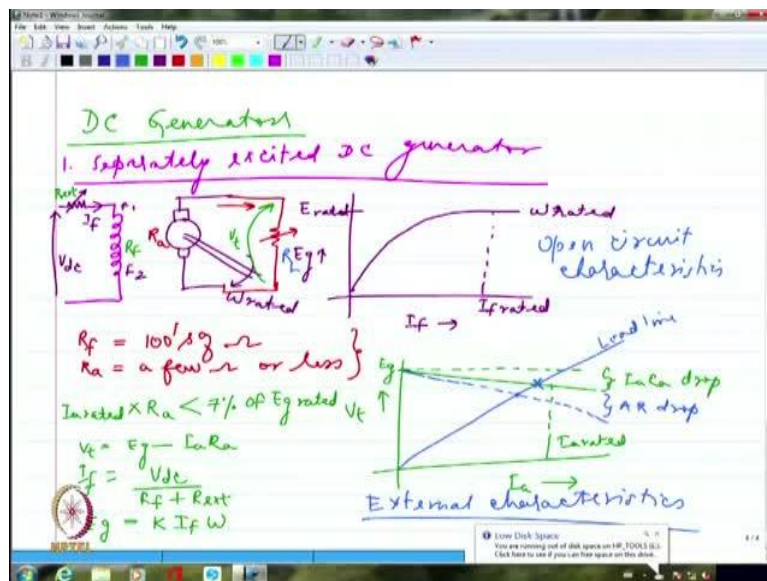 Note1 - Windows Journal
File Edit View Insert Actions Tools Help
100%
DC Generators
1. Separately excited DC generator
Rext
If
F1
Rf
F2
Vdc
Ra
Vt
RL
Wrated
Eg ↑
Erated
Wrated
If →
If rated
Open circuit
characteristics
Rf = 100's of Ω
Ra = a few Ω or less
Ia rated × Ra < 7% of Eg rated
Vt = Eg - IaRa
If = Vdc
Rf + Rext
Eg = K If W
Load line
Eg
Vt ↑
IaRa drop
AR drop
Ia rated
Ia →
External characteristics
NPTEL
4 / 4
Low Disk Space
You are running out of disk space on HP_TOOLS (E:).
Click here to see if you can free space on this drive.